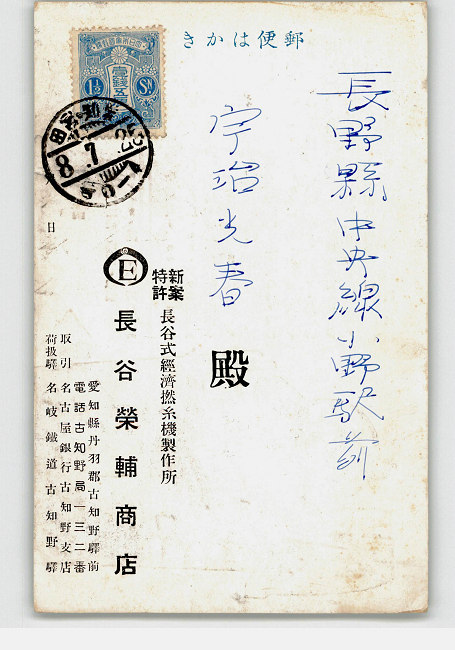 郵便はかき
長野縣中央線小野駅前
宇治光春
殿
壹錢五厘
1½ Sn
8.7.27
日
E
新案
特許
長谷式經濟撚糸機製作所
長谷榮輔商店
愛知縣丹羽郡古知野驛前
電話古知野局一三二番
取引 名古屋銀行古知野支店
荷扱驛 名岐鐵道古知野驛